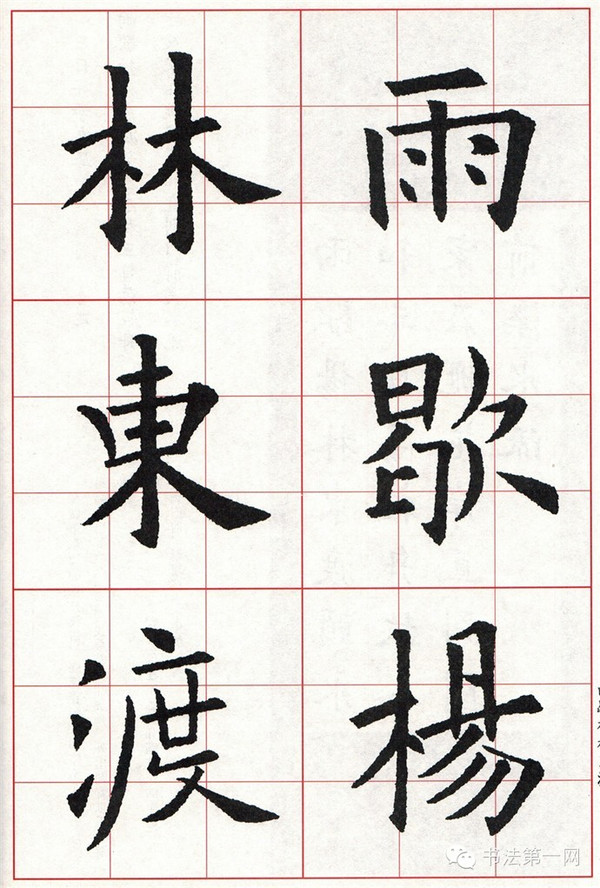 雨歇楊
林東渡
书法第一网